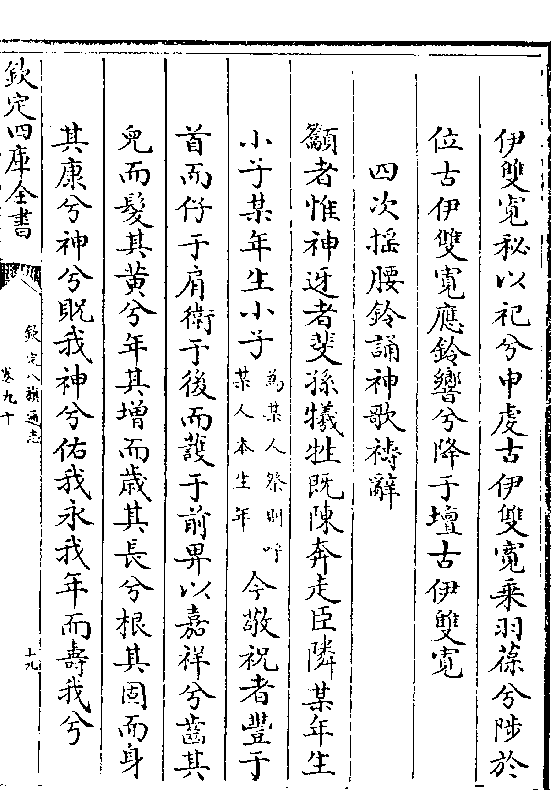 伊雙寛秘以祀兮申虔古伊雙寛乘羽葆兮陟於
位古伊雙寛應鈴響兮降于壇古伊雙寛
四次揺腰鈴誦神歌禱辭
籲者惟神迓者斐孫犧牲既陳奔走臣隣某年生
小子某年生小子
為某人祭則呼
某人本生年
今敬祝者豐于
首而仔于肩衛于後而護于前畀以嘉祥兮齒其
兒而髮其黄兮年其增而歳其長兮根其固而身
其康兮神兮貺我神兮佑我永我年而壽我兮
欽定四庫全書
欽定八旗通志
卷九十
十九